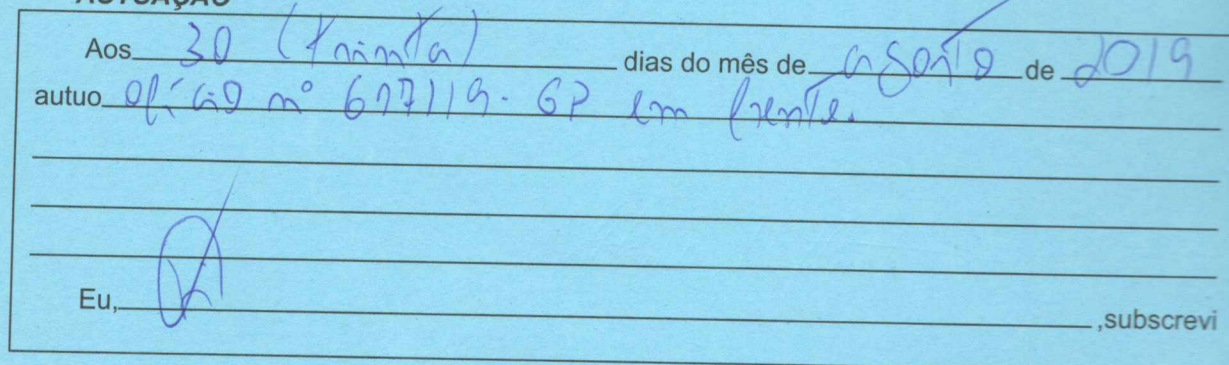 AUTUAÇÃO
Aos 30 (trinta) dias do mês de agosto de 2019
autuo ofício nº 617/19 - GP em frente.
Eu, ,subscrevi